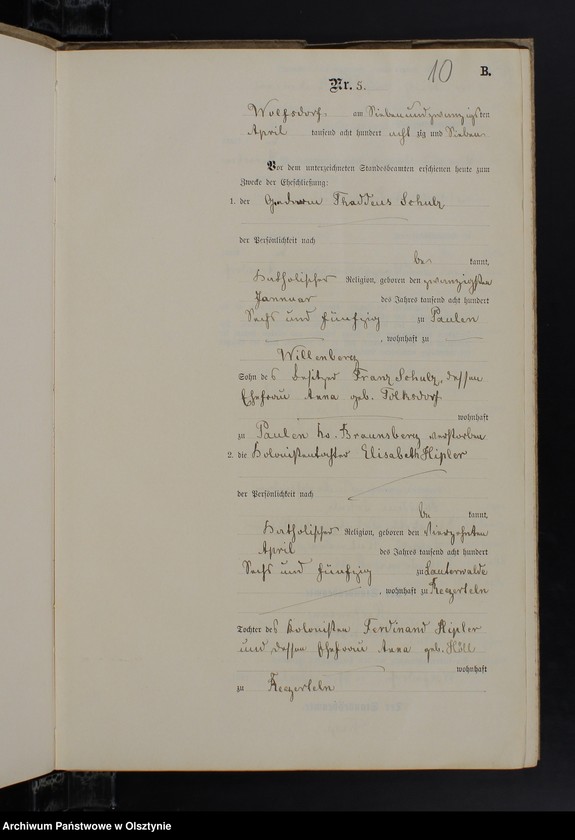 10 B.
Nr. 5.
Wolfsdorf am Siebenundzwanzigsten
April tausend acht hundert acht zig und Sieben
Vor dem unterzeichneten Standesbeamten erschienen heute zum
Zwecke der Eheschließung:
1. der Thaddeus Schulz
der Persönlichkeit nach
be kannt,
katholischer Religion, geboren den zwanzigsten
Januar des Jahres tausend acht hundert
Sechs und fünfzig zu Paulen
, wohnhaft zu
Willenberg
Sohn des Besitzer Franz Schulz, dessen
Ehefrau Anna geb. Tolksdorf
wohnhaft
zu Paulen Kr. Braunsberg verstorben
2. die Kolonistentochter Elisabeth Hipler
der Persönlichkeit nach
be kannt,
katholischer Religion, geboren den Vierzehnten
April des Jahres tausend acht hundert
Sechs und fünfzig zu Lauterwalde
, wohnhaft zu
Tochter des Kolonisten Ferdinand Hipler
und dessen Ehefrau Anna geb.
wohnhaft
zu
Archiwum Państwowe w Olsztynie